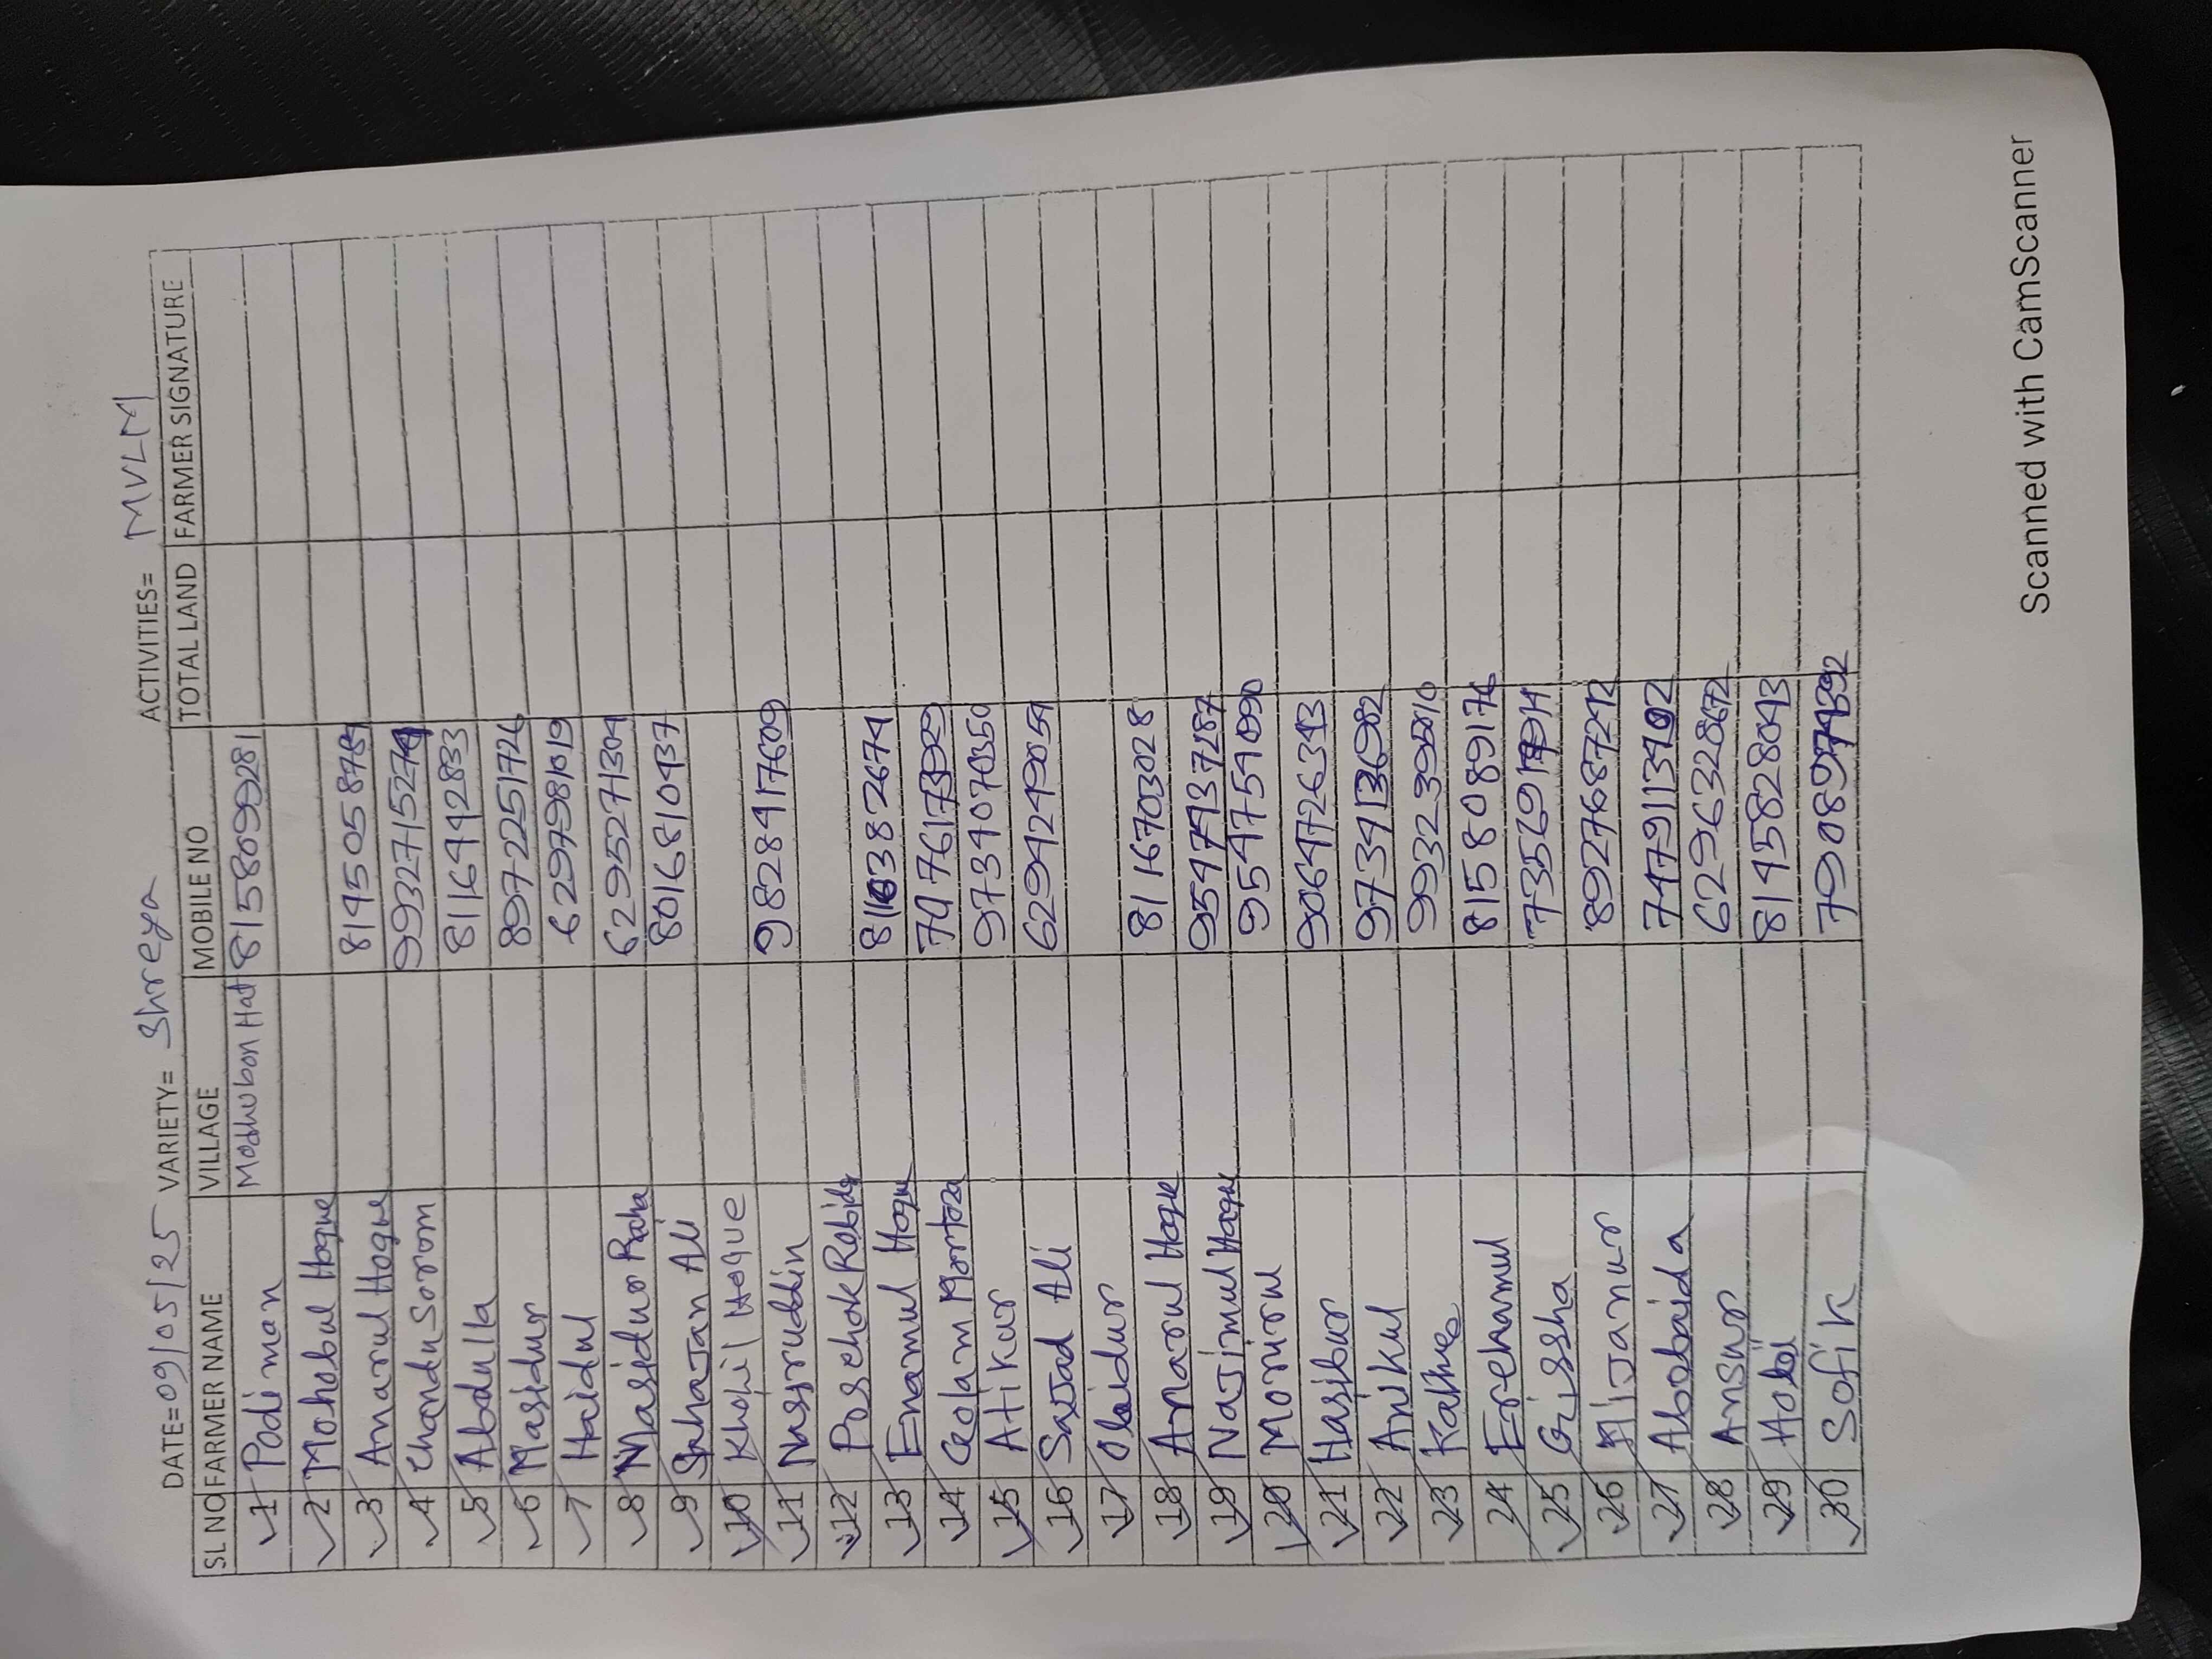 DATE=09/05/25 VARIETY= Shreya ACTIVITIES= MVLM
SL NO FARMER NAME VILLAGE MOBILE NO TOTAL LAND FARMER SIGNATURE
1 Podiman Modhubon Hat 8158099281
2 Mohobul Hoque
3 Amarul Hoque 8145058784
4 Chandu Sorom 99327152
5 Abdulla 8116442833
6 Masidur 8972251726
7 Haidul 6297981019
8 Masidur Raha 6295271304
9 Sahajan Ali 8016810437
10 Khalil Hoque
11 Nasiruddin 9828417609
12 Poschok Robido
13 Enamul Hoque 8116382674
14 Golam Mortoza
15 Atikur 9734070350
16 Sajad Ali 6294249054
17 Obaidur
18 Amarul Hoque 8116703028
19 Najimul Hoque 9547437287
20 Monirul 9547754090
21 Hasibur 9064726343
22 Anikul 9734136982
23 9932395010
24 Erehamul 8158089176
25 Grissha
26 Mijanur 8927687242
27 Abobaida
28 Ansur 6296328672
29 8145828043
30 Sofik
Scanned with CamScanner